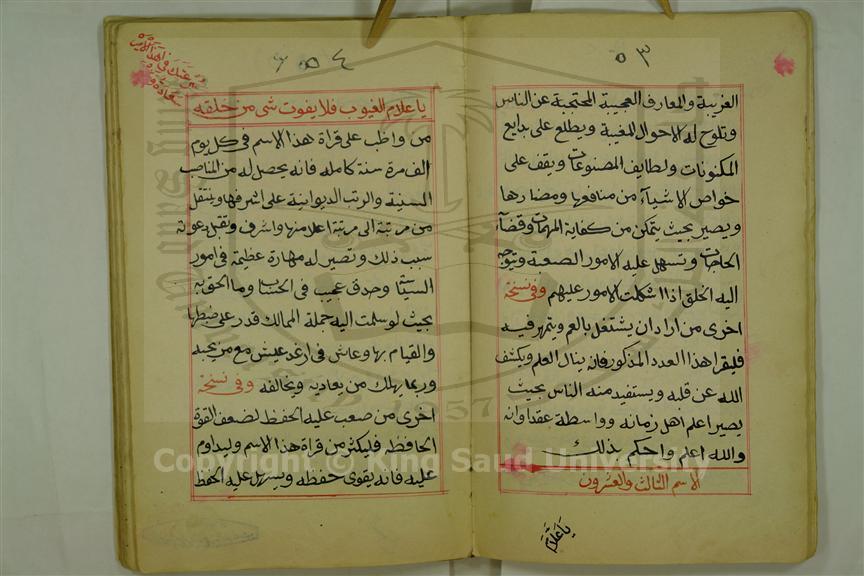 ٥٣
الغريبة والمعارف العجيبة المحتجبة عن الناس
وتلوح له الاحوال للغيبة ويطلع على بدايع
المكنونات ولطايف المصنوعات ويقف على
خواص الاشيآء من منافعها ومضارها
ويصير بحيث يتمكن من كفاية المهمات وقضآء
الحاجات وتسهل عليه الامور الصعبة وتتوجه
اليه الخلق اذا اشكلت الامور عليهم وفى نسخة
اخرى من اراد ان يشتغل بالعلم ويتمهر فيه
فليقرا هذا العدد المذكور فانه ينال العلم ويكشف
الله عن قلبه ويستفيد منه الناس بحيث
يصير اعلم اهل زمانه وواسطة عقد اوانه
والله اعلم واحكم بذلك
الاسم الثالث والعشرون
يا علام
٥٤
يا علام الغيوب فلا يفوت شى من خلقه
من واظب على قراة هذا الاسم فى كل يوم
الف مرة سنة كاملة فانه يحصل له من المناصب
السنية والرتب الديوانية على اشرفها وينتقل
من مرتبة الى مرتبة اعلا منها واشرف وتقبل دعوته
سبب ذلك وتصير له مهارة عظيمة فى امور
وحدق عجيب فى الحساب وما الحق به
بحيث لو سلمت اليه جملة الممالك قدر على ضبطها
والقيام بها وعاش فى ارغد عيش مع من يحبه
وربما يهلك من يعاديه ويخالفه وفى نسخة
اخرى من صعب عليه الحفظ لضعف القوة
الحافظه فليكثر من قراة هذا الاسم وليداوم
عليه فانه يقوى حفظه ويسهل عليه الحفظ
Copyright © King Saud University
1957